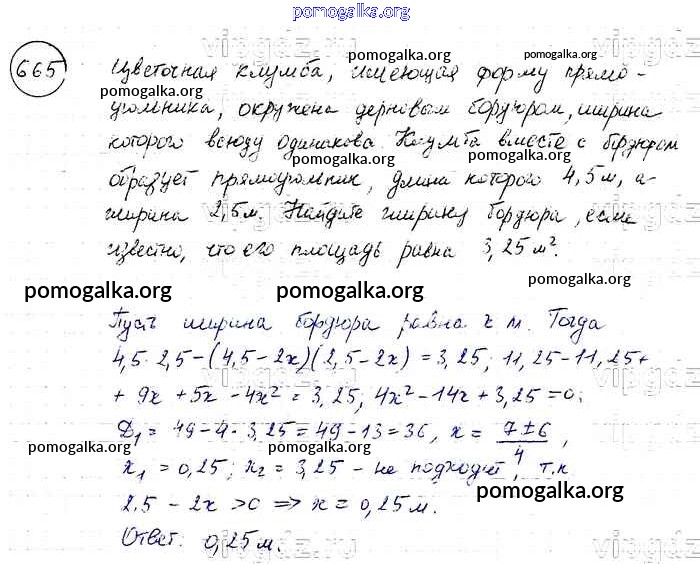 pomogalka.org
665 Цветочная клумба, имеющая форму прямо-
угольника, окружена дерновым бордюром, ширина
которого всюду одинакова. Клумба вместе с бордюром
образует прямоугольник, длина которого 4,5м, а
ширина 2,5м. Найдите ширину бордюра, если
известно, что его площадь равна 3,25м².
Пусть ширина бордюра равна x м. Тогда
4,5·2,5-(4,5-2x)(2,5-2x)=3,25; 11,25-11,25+
+9x+5x-4x²=3,25, 4x²-14x+3,25=0;
D₁=49-4·3,25=49-13=36, x=(7±6)/4,
x₁=0,25; x₂=3,25 - не подходит, т.к
2.5-2x>0 => x=0,25м.
Ответ: 0,25м.
pomogalka.org
pomogalka.org
pomogalka.org
pomogalka.org
pomogalka.org
pomogalka.org
pomogalka.org
pomogalka.org
pomogalka.org
pomogalka.org
pomogalka.org
pomogalka.org